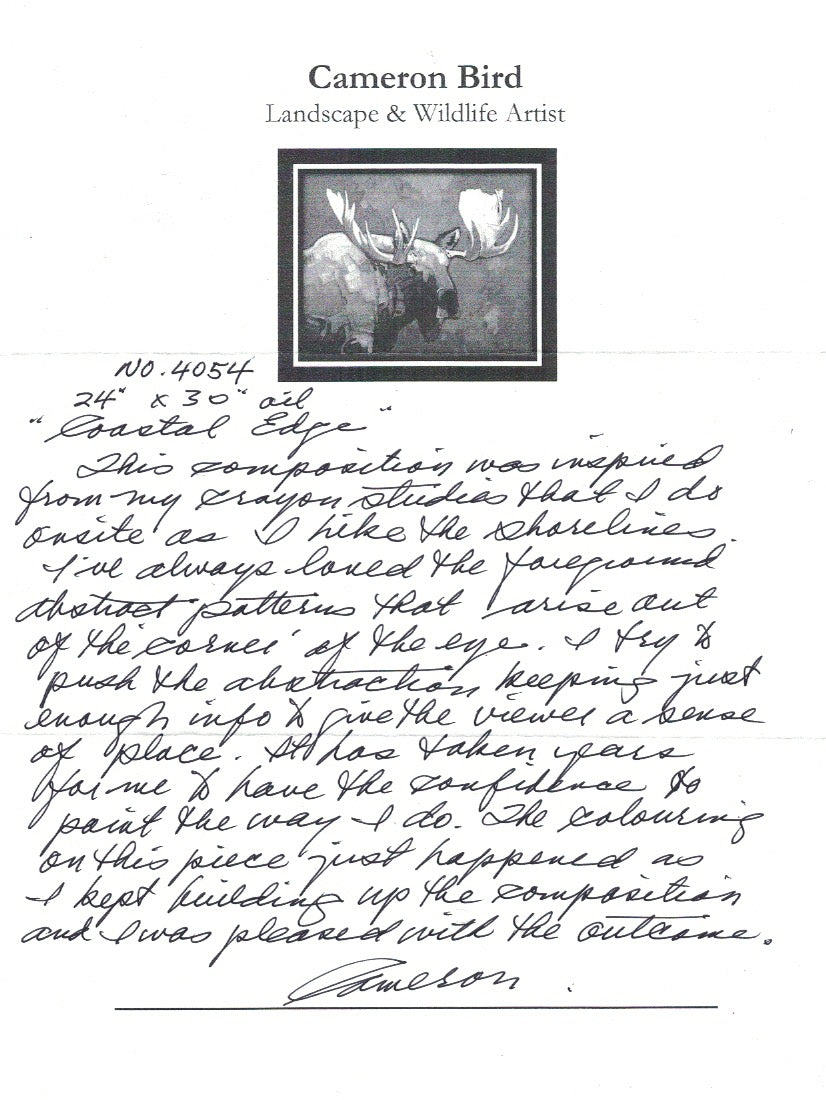 Cameron Bird
Landscape & Wildlife Artist
NO. 4054
24" x 30" oil
"Coastal Edge"
This composition was inspired
from my crayon studies that I do
onsite as I hike the shorelines.
I've always loved the foreground
abstract patterns that arise out
of the 'corner' of the eye. I try to
push the abstraction keeping just
enough info to give the viewer a sense
of place. It has taken years
for me to have the confidence to
paint the way I do. The colouring
on this piece just happened as
I kept building up the composition
and I was pleased with the outcome.
Cameron.